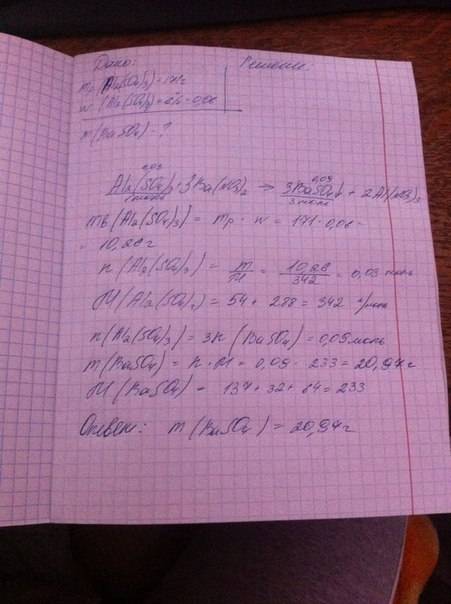 Дано: Решение:
mр (Al2(SO4)3) = 171г
w (Al2(SO4)3) = 6% = 0,06
m(BaSO4) - ?
0,03 0,09
Al2(SO4)3 + 3Ba(NO3)2 → 3BaSO4↓ + 2Al(NO3)3
1 моль 3 моль
mв (Al2(SO4)3) = mр · w = 171 · 0,06 =
= 10,26 г
n (Al2(SO4)3) = m/M = 10,26/342 = 0,03 моль
M (Al2(SO4)3) = 54 + 288 = 342 г/моль
n (Al2(SO4)3) = 3n (BaSO4) = 0,09 моль
m (BaSO4) = n · M = 0,09 · 233 = 20,97 г
M (BaSO4) = 137 + 32 + 64 = 233
Ответ: m (BaSO4) = 20,97 г